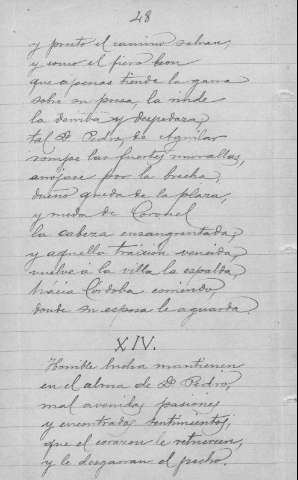 48
y pronto el camino salvan,
y como el fiero leon
que apenas tiende la garra
sobre su presa, la rinde
la derriba y despedaza,
tal D. Pedro, de Aguilar
rompe las fuertes murallas,
arrójase por la brecha,
dueño queda de la plaza,
y rueda de Coronel
la cabeza ensangrentada,
y aquella traicion vencida,
vuelve á la villa la espalda,
hácia Córdoba corriendo,
donde su esposa le aguarda.
XIV.
Horrible lucha mantienen
en el alma de D. Pedro,
mal avenidas pasiones
y encontrados sentimientos,
que el corazon le retuercen,
y le desgarran el pecho.